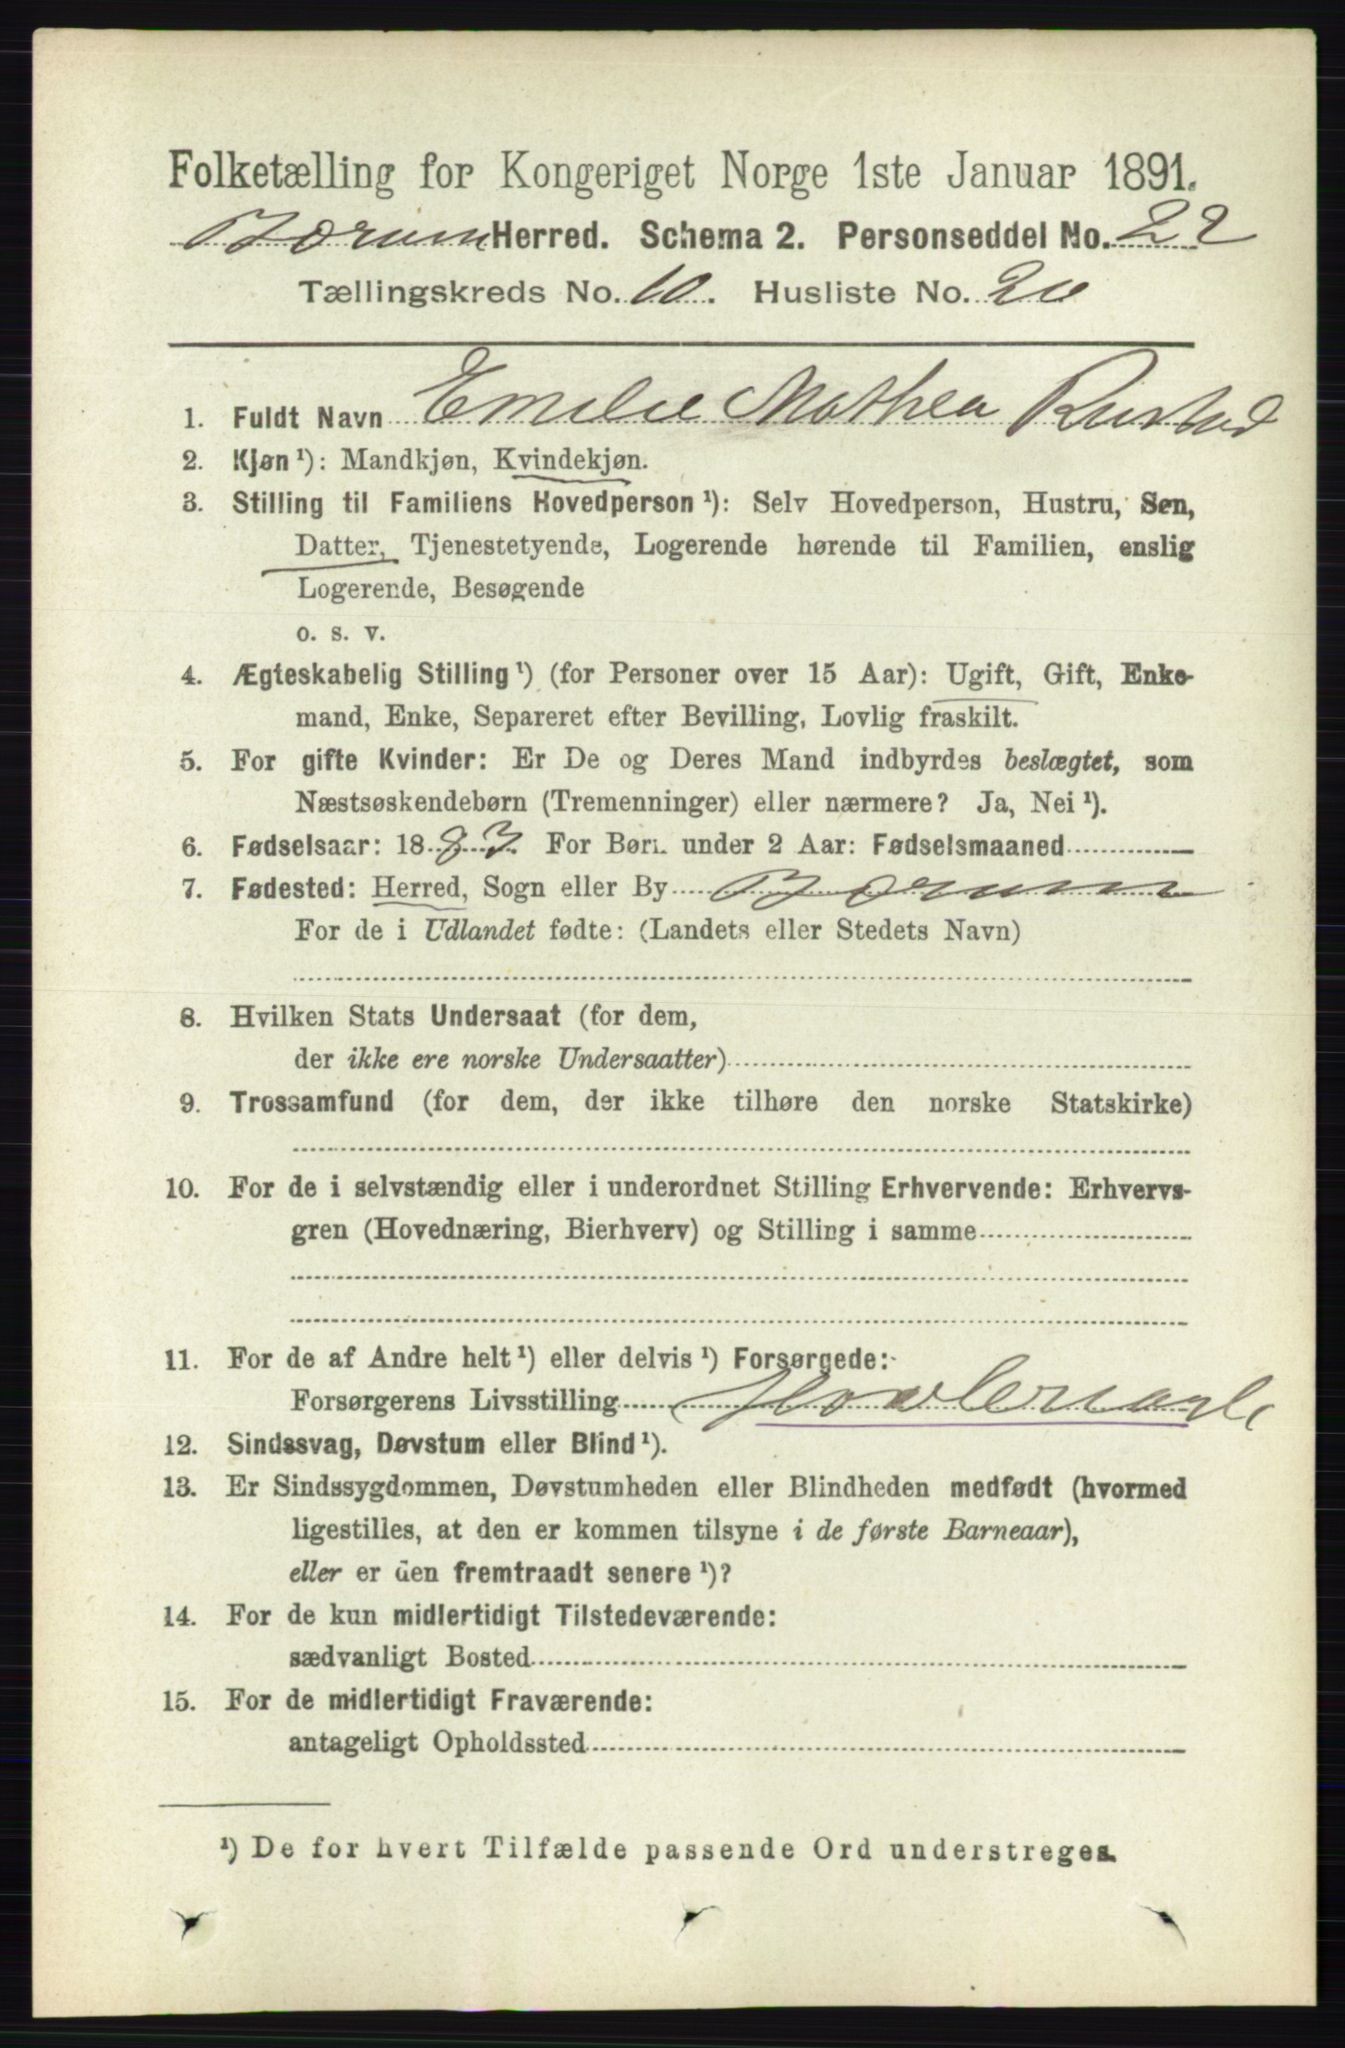 Folketælling for Kongeriget Norge 1ste Januar 1891.
Bærum Herred. Schema 2. Personseddel No. 22
Tællingskreds No. 10. Husliste No. 20
1. Fuldt Navn Emilie Mathea Rustad
2. Kjøn¹): Mandkjøn, Kvindekjøn.
3. Stilling til Familiens Hovedperson¹): Selv Hovedperson, Hustru, Søn,
Datter, Tjenestetyende, Logerende hørende til Familien, enslig
Logerende, Besøgende
o. s. v.
4. Ægteskabelig Stilling¹) (for Personer over 15 Aar): Ugift, Gift, Enke-
mand, Enke, Separeret efter Bevilling, Lovlig fraskilt.
5. For gifte Kvinder: Er De og Deres Mand indbyrdes beslægtet, som
Næstsøskendebørn (Tremenninger) eller nærmere? Ja, Nei¹).
6. Fødselsaar: 1883. For Børn under 2 Aar: Fødselsmaaned
7. Fødested: Herred, Sogn eller By Bærum
For de i Udlandet fødte: (Landets eller Stedets Navn)
8. Hvilken Stats Undersaat (for dem,
der ikke ere norske Undersaatter)
9. Trossamfund (for dem, der ikke tilhøre den norske Statskirke)
10. For de i selvstændig eller i underordnet Stilling Erhvervende: Erhvervs-
gren (Hovednæring, Bierhverv) og Stilling i samme
11. For de af Andre helt¹) eller delvis¹) Forsørgede:
Forsørgerens Livsstilling
12. Sindssvag, Døvstum eller Blind¹).
13. Er Sindssygdommen, Døvstumheden eller Blindheden medfødt (hvormed
ligestilles, at den er kommen tilsyne i de første Barneaar),
eller er den fremtraadt senere¹)?
14. For de kun midlertidigt Tilstedeværende:
sædvanligt Bosted
15. For de midlertidigt Fraværende:
antageligt Opholdssted
¹) De for hvert Tilfælde passende Ord understreges.